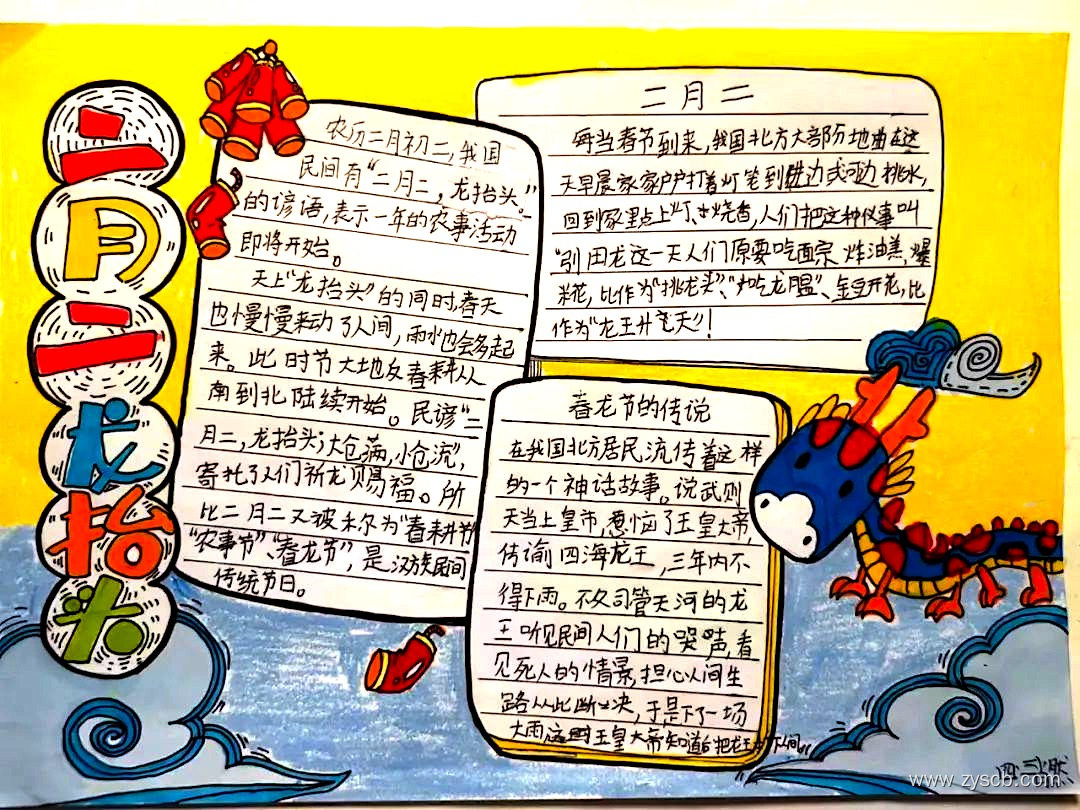 二月二龙抬头
农历二月初二,我国
民间有“二月二,龙抬头”
的谚语,表示一年的农事活动
即将开始。
天上“龙抬头”的同时,春天
也慢慢来动了人间,雨水也会多起
来。此时节大地反春耕从
南到北陆续开始。民谚“二
月二,龙抬头;大仓满,小仓流”,
寄托了人们祈龙赐福。所
比二月二又被称为“春耕节
“农事节”、“春龙节”,是汉族民间
传统节日。
二月二
每当春节到来,我国北方大部份地曲在这
天早晨家家户户打着灯笼到 边或河边挑水,
回到家里点上灯、烧香,人们把这种仪事叫
“引田龙这一天人们原要吃面宗 炸油羔,爆
米花,比作为“挑龙头”、“吃龙胆”、金豆开花,比
作为“龙王升 天”!
春龙节的传说
在我国北方居民流传着这样
的一个神话故事。说武则
天当上皇市,惹恼了玉皇大帝,
传谕四海龙王,三年内不
得下雨。不久司管天河的龙
王听见民间人们的哭声,看
见死人的情景,担心人间生
路从此断决,于是下了一场
大雨这 王皇大帝知道后把龙王 下人间。
www.zyscb.com